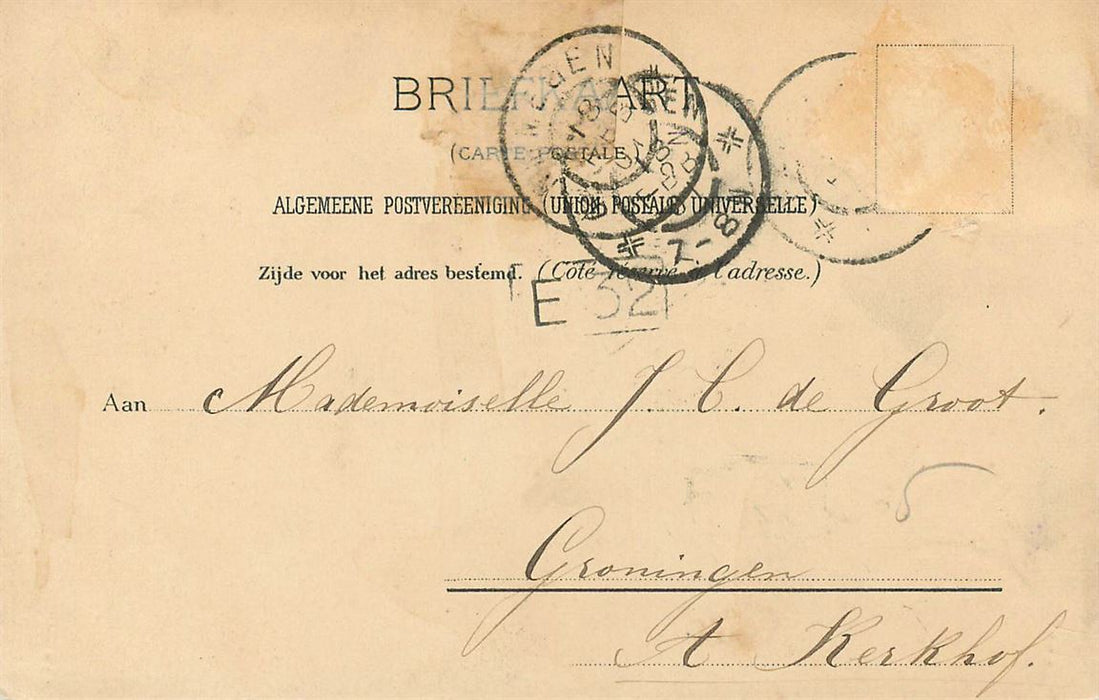 BRIEFKAART
(CARTE POSTALE)
ALGEMEENE POSTVEREENIGING (UNION POSTALE UNIVERSELLE)
Zijde voor het adres bestemd. (Côté réservé à l'adresse.)
E 32
Aan Mademoiselle J. C. de Groot.
5
Groningen
A Kerkhof.